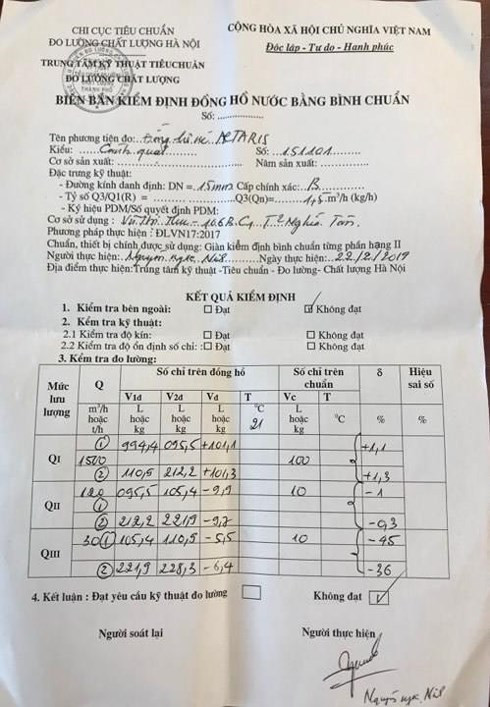 CHI CỤC TIÊU CHUẨN
ĐO LƯỜNG CHẤT LƯỢNG HÀ NỘI
TRUNG TÂM KỸ THUẬT TIÊU CHUẨN
ĐO LƯỜNG CHẤT LƯỢNG
CỘNG HÒA XÃ HỘI CHỦ NGHĨA VIỆT NAM
Độc lập - Tự do - Hạnh phúc
BIÊN BẢN KIỂM ĐỊNH ĐỒNG HỒ NƯỚC BẰNG BÌNH CHUẨN
Số: ....................
Tên phương tiện đo: Đồng hồ ACTARIS
Kiểu: Cánh quạt Số: 151101
Cơ sở sản xuất: Năm sản xuất:
Đặc trưng kỹ thuật:
- Đường kính danh định: DN = 15mm Cấp chính xác: B
- Tỷ số Q3/Q1(R) = Q3(Qn)= 1,5 m³/h (kg/h)
- Ký hiệu PDM/Số quyết định PDM:
Cơ sở sử dụng : Vũ Thị 106.B Nghĩa Tân.
Phương pháp thực hiện : ĐLVN17:2017
Chuẩn, thiết bị chính được sử dụng: Giàn kiểm định bình chuẩn từng phần hạng II
Người thực hiện: Nguyễn Ngọc Ngày thực hiện: 22/2/2019
Địa điểm thực hiện: Trung tâm kỹ thuật -Tiêu chuẩn - Đo lường- Chất lượng Hà Nội
KẾT QUẢ KIỂM ĐỊNH
1. Kiểm tra bên ngoài: ☐ Đạt ☑ Không đạt
2. Kểm tra kỹ thuật:
2.1 Kiểm tra độ kín: ☐ Đạt ☐ Không đạt
2.2 Kiểm tra độ ổn định số chỉ : :☐ Đạt ☐ Không đạt
3. Kểm tra đo lường:
Mức lưu lượng Q Số chỉ trên đồng hồ Số chỉ trên chuẩn δ Hiệu sai số
V1d V2d Vd T Vc T
m³/h hoặc t/h L hoặc kg L hoặc kg L hoặc kg °C 21 L hoặc kg °C % %
QI 1500 100
① 994,4 095,5 +101,1 +1,1
② 110,5 212,2 +101,3 +1,3
QII 120 095,5 105,4 -9,9 10 -1
①
② 212,2 221,9 -9,7 -0,3
QIII 30 ① 105,4 110,5 -5,5 10 -45
② 221,9 228,3 -6,4 -36
4. Kết luận : Đạt yêu cầu kỹ thuật đo lường ☐ Không đạt ☑
Người soát lại Người thực hiện
Nguyễn Ngọc